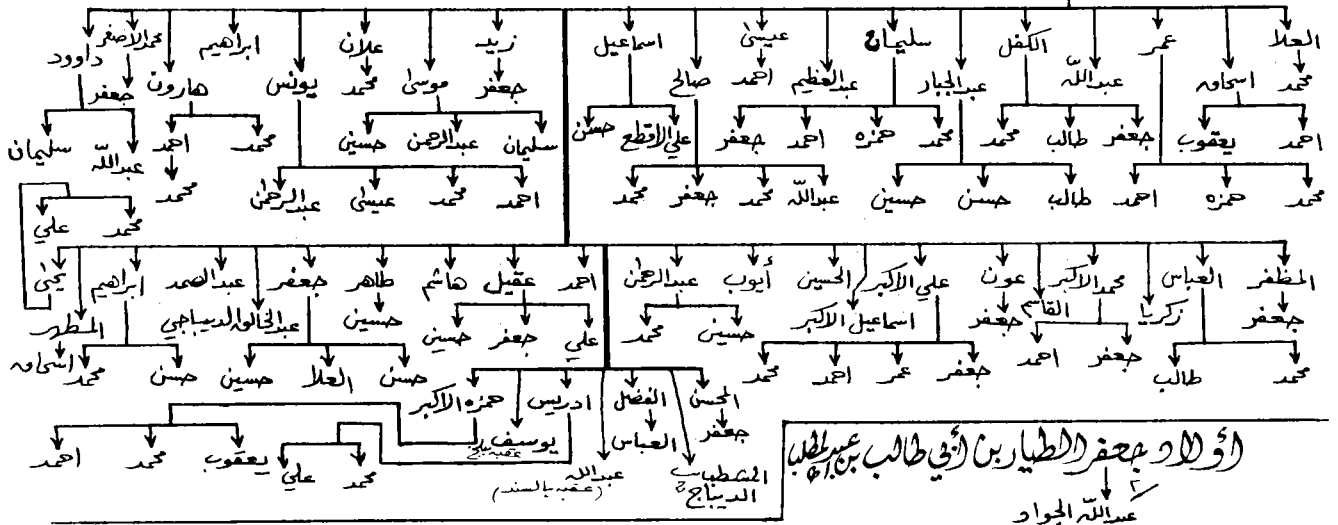 العلا عمر الكفل سليمان عيسى اسماعيل زيد علان ابراهيم محمد الاصغر داوود
محمد اسحاق عبدالله عبدالجبار عبدالعظيم احمد صالح جعفر موسى محمد يونس هارون جعفر
احمد يعقوب جعفر طالب محمد محمد حمزه احمد جعفر علي الاقطع حسن سليمان عبدالرحمن حسين محمد احمد عبدالله سليمان
محمد حمزه احمد طالب حسن حسين عبدالله محمد جعفر محمد احمد محمد عيسى عبدالرحمن محمد
محمد علي
المظفر العباس زكريا محمد الاكبر القاسم عون علي الاكبر اسماعيل الاكبر الحسين أيوب عبدالرحمن احمد عقيل هاشم طاهر جعفر عبدالصمد عبدالخالق الديباجي ابراهيم المطهر يحيى
جعفر جعفر حسين محمد حسين
جعفر احمد علي جعفر حسين
محمد طالب جعفر عمر احمد محمد حسن العلا حسين حسن محمد اسحاق
المحسن الفضل ادريس حمزه الاكبر
جعفر العباس يوسف
عبدالله
(عقبه بالسند)
الديباج
محمد علي يعقوب محمد احمد
أولاد جعفر الطيار بن أبي طالب بن عبدالمطلب
عبدالله الجواد